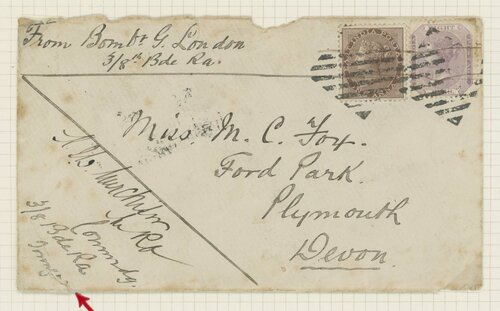 From Bombr G. London
3/8th Bde Ra.
INDIA POSTAGE
Miss. M. C. Fox.
Ford Park.
Plymouth
Devon.
Lt Ra
Commdg.
3/8 Bde Ra